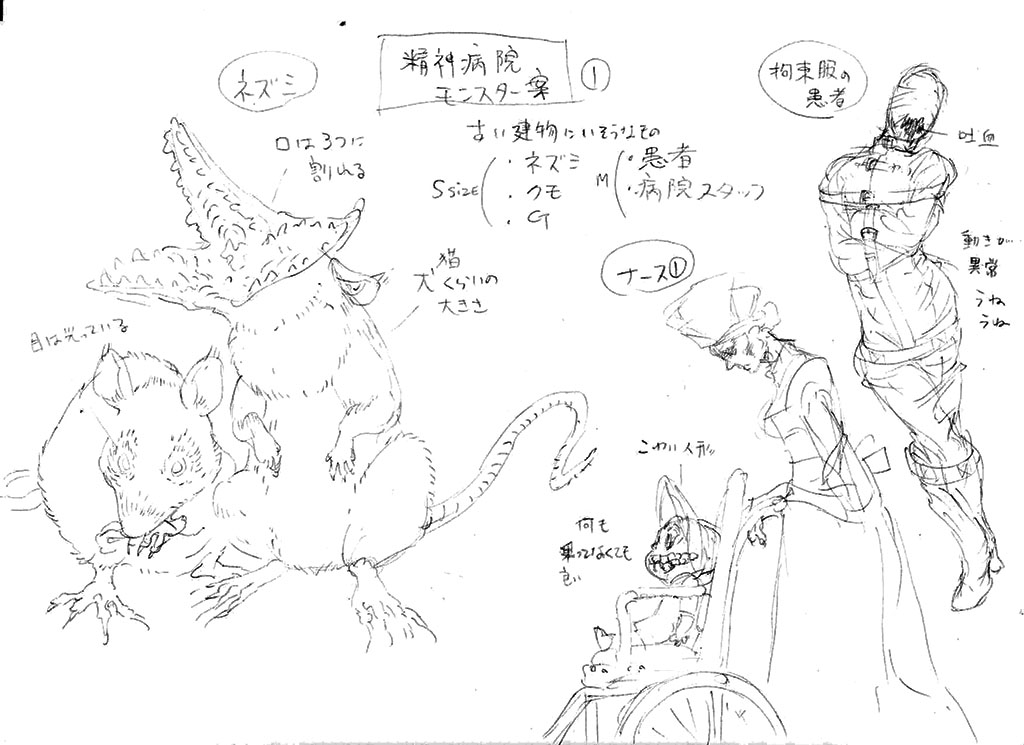 精神病院
モンスター案
①
古い建物にいそうなもの
Ssize
・ネズミ
・クモ
・G
M
・患者
・病院スタッフ
ネズミ
口は3つに
割れる
猫
犬くらいの
大きさ
目は光っている
拘束服の
患者
吐血
動きが
異常
うね
うね
ナース①
こわい人形
何も
乗ってなくても
良い